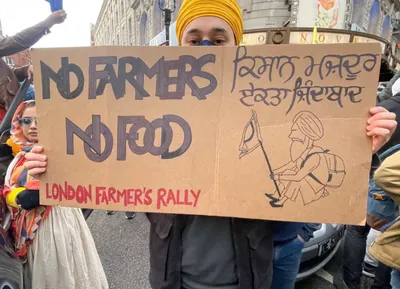 NO FARMERS
NO FOOD
LONDON FARMER'S RALLY
ਕਿਸਾਨ ਮਜ਼ਦੂਰ
ਏਕਤਾ ਜ਼ਿੰਦਾਬਾਦ